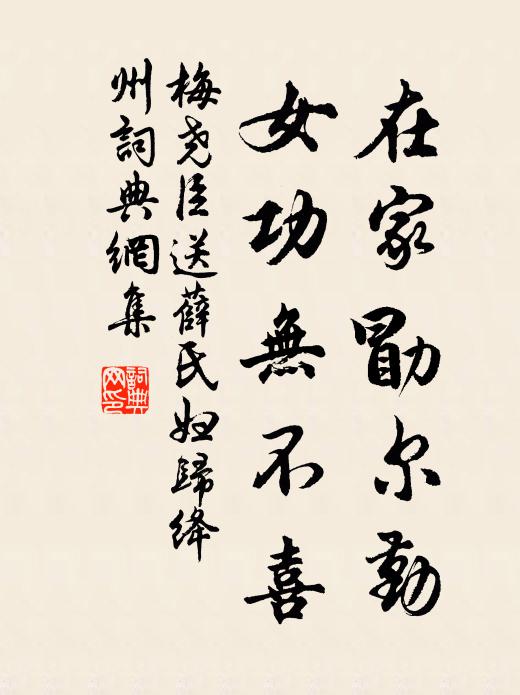 在家勖尔勤
女功無不喜
梅尧臣送薛氏妇歸绛
州詞典網集
詞典網印